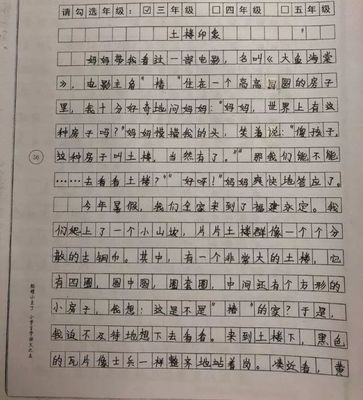 请勾选年级：☑三年级 □四年级 □五年级
土楼印象
妈妈带我看过一部电影，名叫《大鱼海棠
》，电影主角“椿”住在一个高高圆圆的房子
里，我十分好奇地问妈妈：“妈妈，世界上有这
种房子吗？”妈妈摸摸我的头，笑着说：“傻孩子，
这种房子叫土楼。当然有了。”“那我们能不能
……去看看土楼？”“好呀！”妈妈爽快地答应了。
今年暑假，我们全家来到了福建永定。我
们爬上了一个小山坡，片片土楼群像一个个分
散的古铜币。其中，有一个非常大的土楼，它
有四圈，圈中圈，圈套圈，中间还有个方形的
小房子，我想：这是不是“椿”的家？于是，
我迫不及待地想下去看看。来到土楼下，黑色
的瓦片像士兵一样整齐地站着岗。凑近看，黄
36